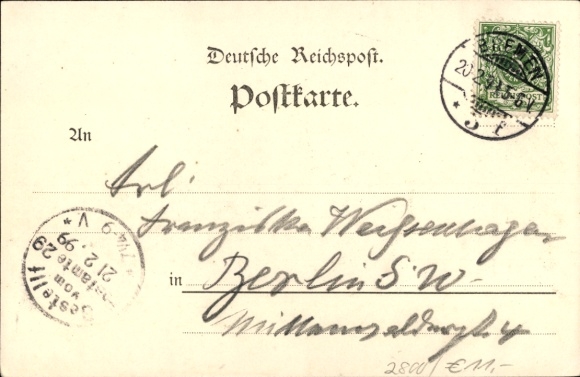 Deutsche Reichspost.
Postkarte.
BREMEN
20 2 99 5-6 N
* 5 f
REICHSPOST
An
Frl:
Franziska Wachsenhagen
in Berlin S.W.
Bestellt
vom
Postamte 29
21/2.99
7¼-9 V
2800/€ 11,-